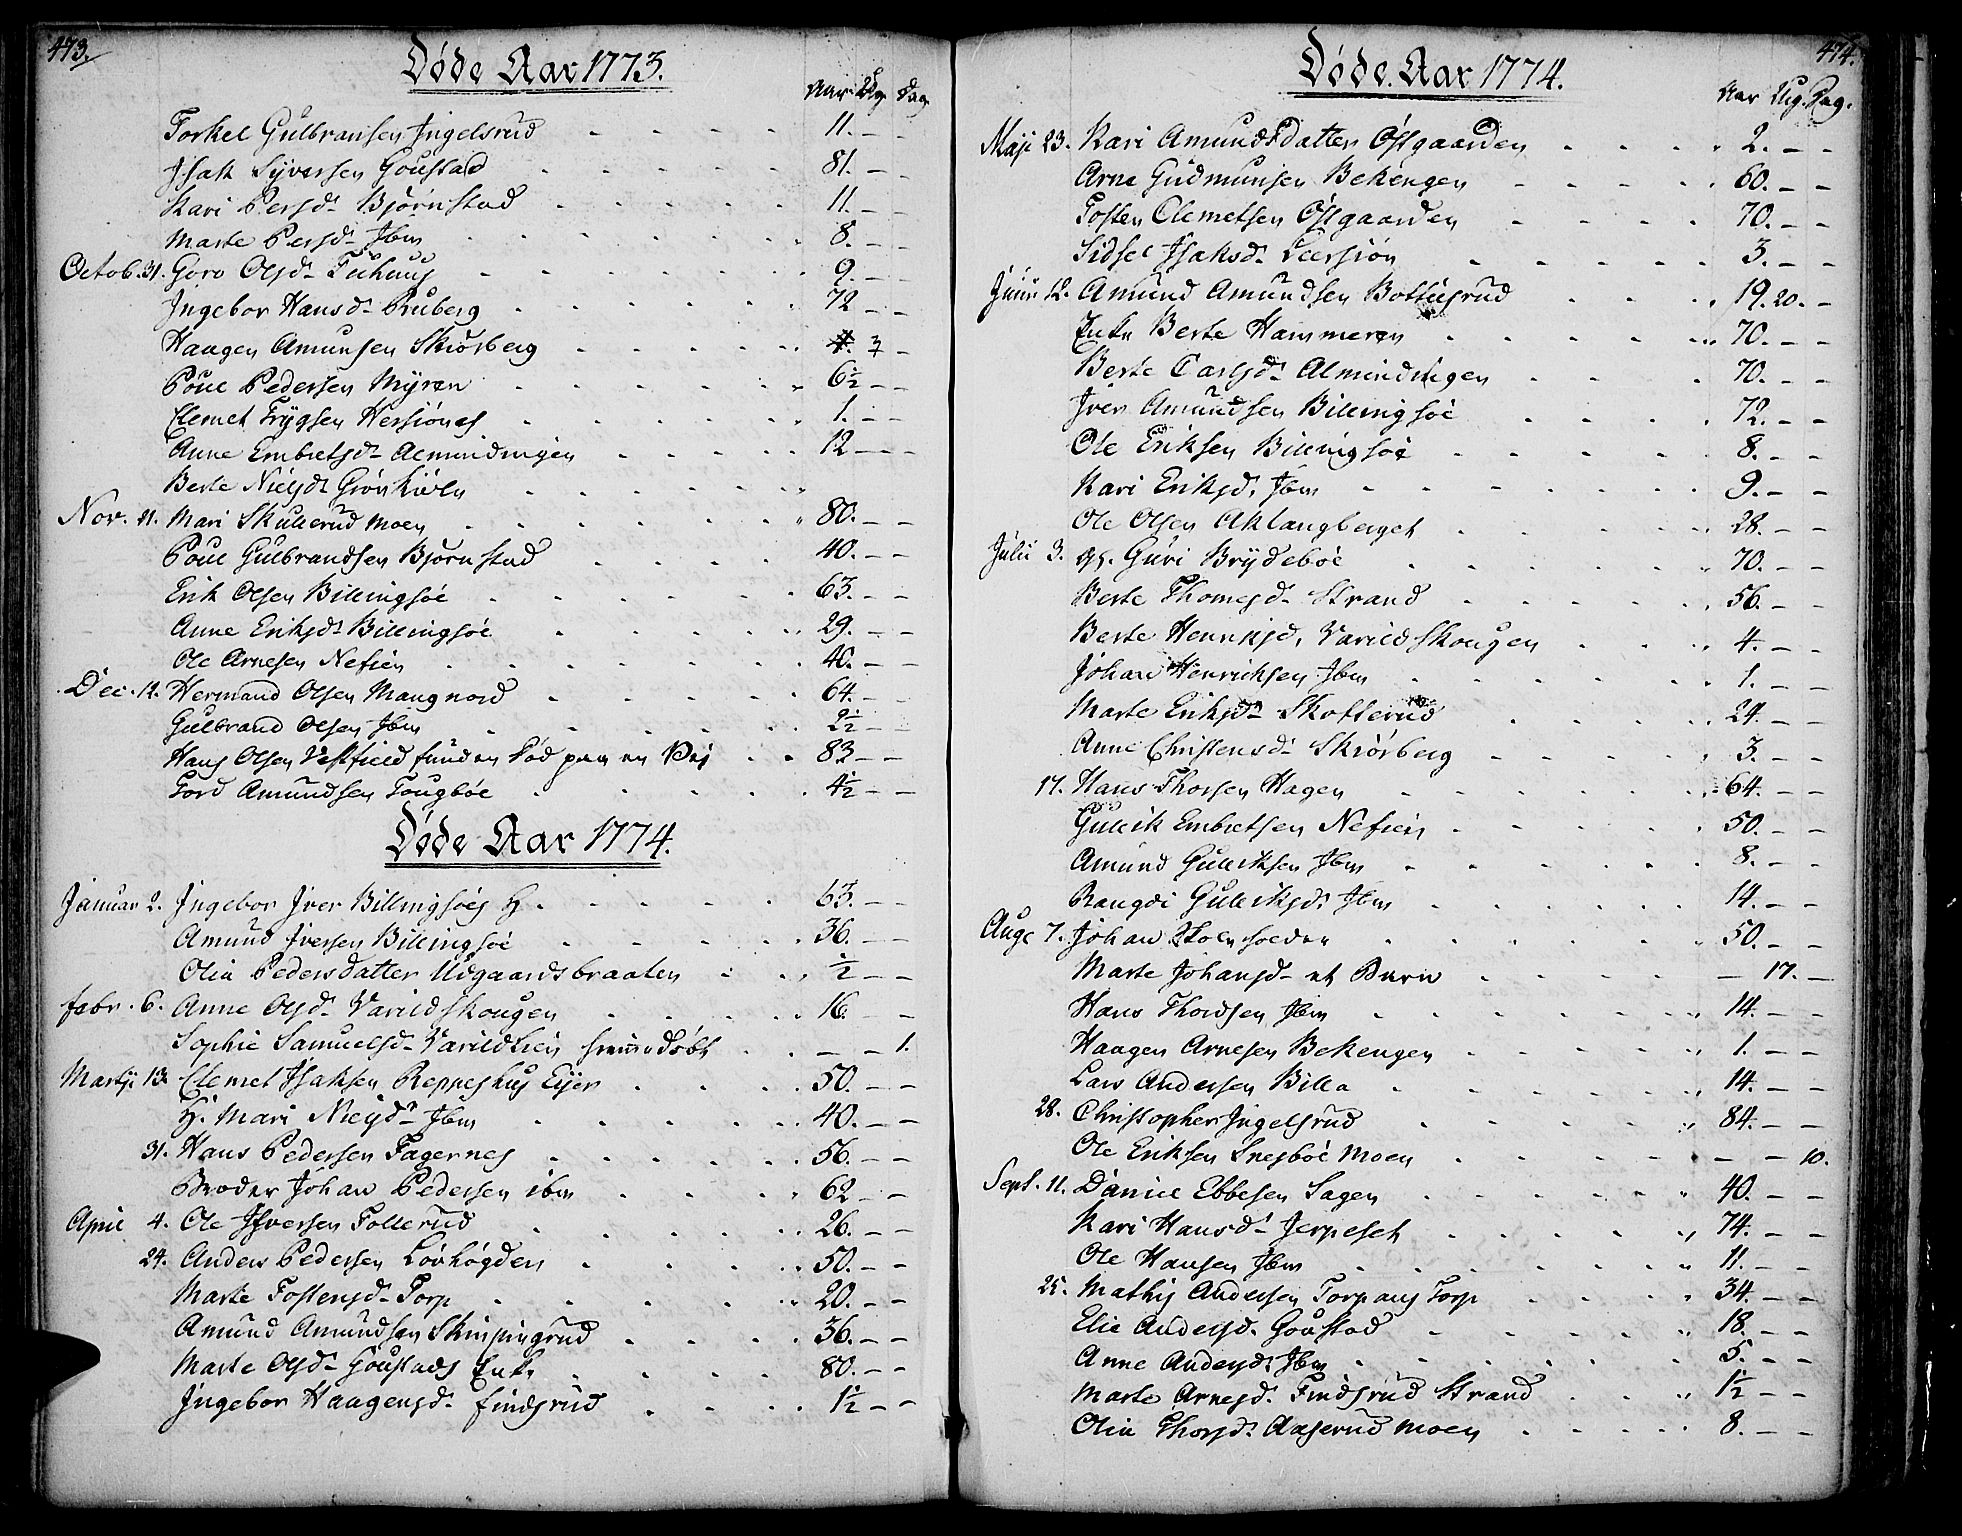 473.
Døde Aar 1773.
Aar Ug. Dag.
Torkel Gulbransen Ingelsrud 11. - -
Isak Syversen Goustad 81. - -
Kari Persd. Bjørnstad 11. - -
Marte Persd. Ibm 8. - -
Octob. 31. Goro Olsd. 9. - -
Ingebor Hansd. Ruberg 72 - -
Haagen Amunsen Skiørberg 7 -
Poul Pedersen Myren 6½ - -
Clemet Trygsen 1. - -
Anne Embretsd. Almindingen 12 - -
Berte Nielsd.
Nov. 21. Mari Skullerud moen 80. - -
Poul Gulbrandsen Bjørnstad 40. - -
Erik Olsen Billingsøe 63. - -
Anne Eriksd. Billingsøe 29. - -
Ole Arnesen Nefien 40. - -
Dec. 12. Hermand Olsen Mangnord 64. -
Gulbrand Olsen Ibm 2½ - -
Hans Olsen funden død paa en Vej 83 - -
Tord Amundsen Tougbøe 4½ - -
Døde Aar 1774.
Januar 2. Ingebor Iver Billingsøes H. 63. - -
Amund Iversen Billingsøe 36. - -
Olia Pedersdatter Udgaardsbraaten ½ - -
febr. 6. Anne Olsd. Varildskougen 16. - -
Sophie Samuelsd. Varildlien hiemedøbt - - 1.
Martji 13. Clemet Isaksen Reppeshus Eier 50. - -
H. Mari Nielsd. Ibm 40. - -
31. Hans Pedersen Fagernes 56. - -
Broder Johan Pedersen ibm 62 - -
April 4. Ole Iversen Tollerud 26. - -
24. Anders Pedersen Løvhøgden 50. - -
Marte Tostensd. Torp 20. - -
Amund Amundsen 36. - -
Marte Olsd. Goustads Enke 80. - -
Ingebor Haagensd. findsrud 1½ - -
474.
Døde Aar 1774.
Aar Ug. Dag.
Maji 23. Kari Amundsdatter Østgaarden 2. - -
Arne Gudmunsen Bekengen 60. - -
Tosten Clemetsen Østgaarden 70. - -
Sidsel Isaksd. Leersiøn 3. - -
Junii 12. Amund Amundsen Bottilsrud 19. 20. -
Enke Berte Hammeren 70. - -
Berte Carlsd. Almindingen 70. - -
Iver Amundsen Billingsøe 72. - -
Ole Eriksen Billingsøe 8. - -
Kari Eriksd. Ibm 9. - -
Ole Olsen Aklangberget 28. - -
Julii 3. Guri Brydebøe 70. - -
Berte Thomesd. Strand 56. - -
Berte Henriksd. Varildskougen 4. - -
Johan Henrichsen Ibm 1. - -
Marte Eriksd. Skotterud 24. - -
Anne Christensd. Skiørberg 3. - -
17. Hans Thorsen Hagen 64. - -
Gulerik Embretsen Nefien 50. - -
Amund Guleriksen Ibm 8. - -
Rangdi Guleriksd. Ibm 14. - -
Aug. 7. Johan 50. - -
Marte Johansd. et Barn - 17. -
Hans Thordsen Ibm 14. - -
Haagen Arnesen Bekengen 1. - -
Lars Andersen Billa 14. - -
28. Christopher Ingelsrud 84. - -
Ole Eriksen Snesbøe moen - - 10.
Sept. 11. Daniel Ebbesen Sagen 40. - -
Kari Hansd. Jerpeset 74. - -
Ole Hansen Ibm 11. - -
25. Mathis Andersen Torp Torp 34. - -
Elie Andersd. Goustad 18. - -
Anne Andersd. Ibm 5. - -
Marte Arnesd. Findsrud Strand 1½ - -
Olia Thorsd. Aaserud moen 8. - -